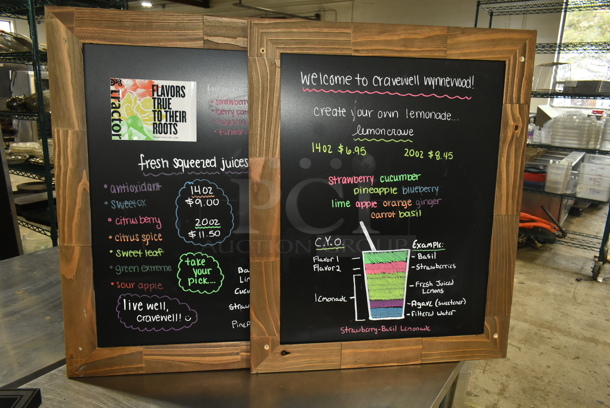 tractor
FLAVORS
TRUE
TO THEIR
ROOTS
fresh squeezed juices
antioxidant
sweetox
citrus berry
citrus spice
sweet leaf
green extreme
sour apple
14 OZ
$9.00
20 OZ
$11.50
take
your
pick...
live well,
cravewell!
welcome to cravewell wynnewood!
create your own lemonade...
lemoncrave
14 OZ $6.95 20 OZ $8.45
strawberry cucumber
pineapple blueberry
lime apple orange ginger
carrot basil
C.Y.O.
Flavor 1
Flavor 2
lemonade
Example:
Basil
Strawberries
Fresh Juiced
Lemons
Agave (sweetener)
Filtered Water
Strawberry-Basil Lemonade
PCI
AUCTION GROUP